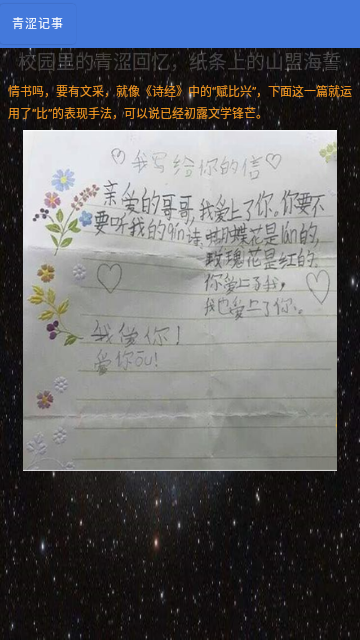 青涩记事
校园里的青涩回忆，纸条上的山盟海誓
情书吗，要有文采，就像《诗经》中的“赋比兴”，下面这一篇就运
用了“比”的表现手法，可以说已经初露文学锋芒。
我写给你的信
亲爱的哥哥，我爱上了你。你要不
要听我的qín诗，蝴蝶花是lán的，
玫瑰花是红的。
你爱上了我，
我也爱上了你。
我爱你！
爱你ǒu！